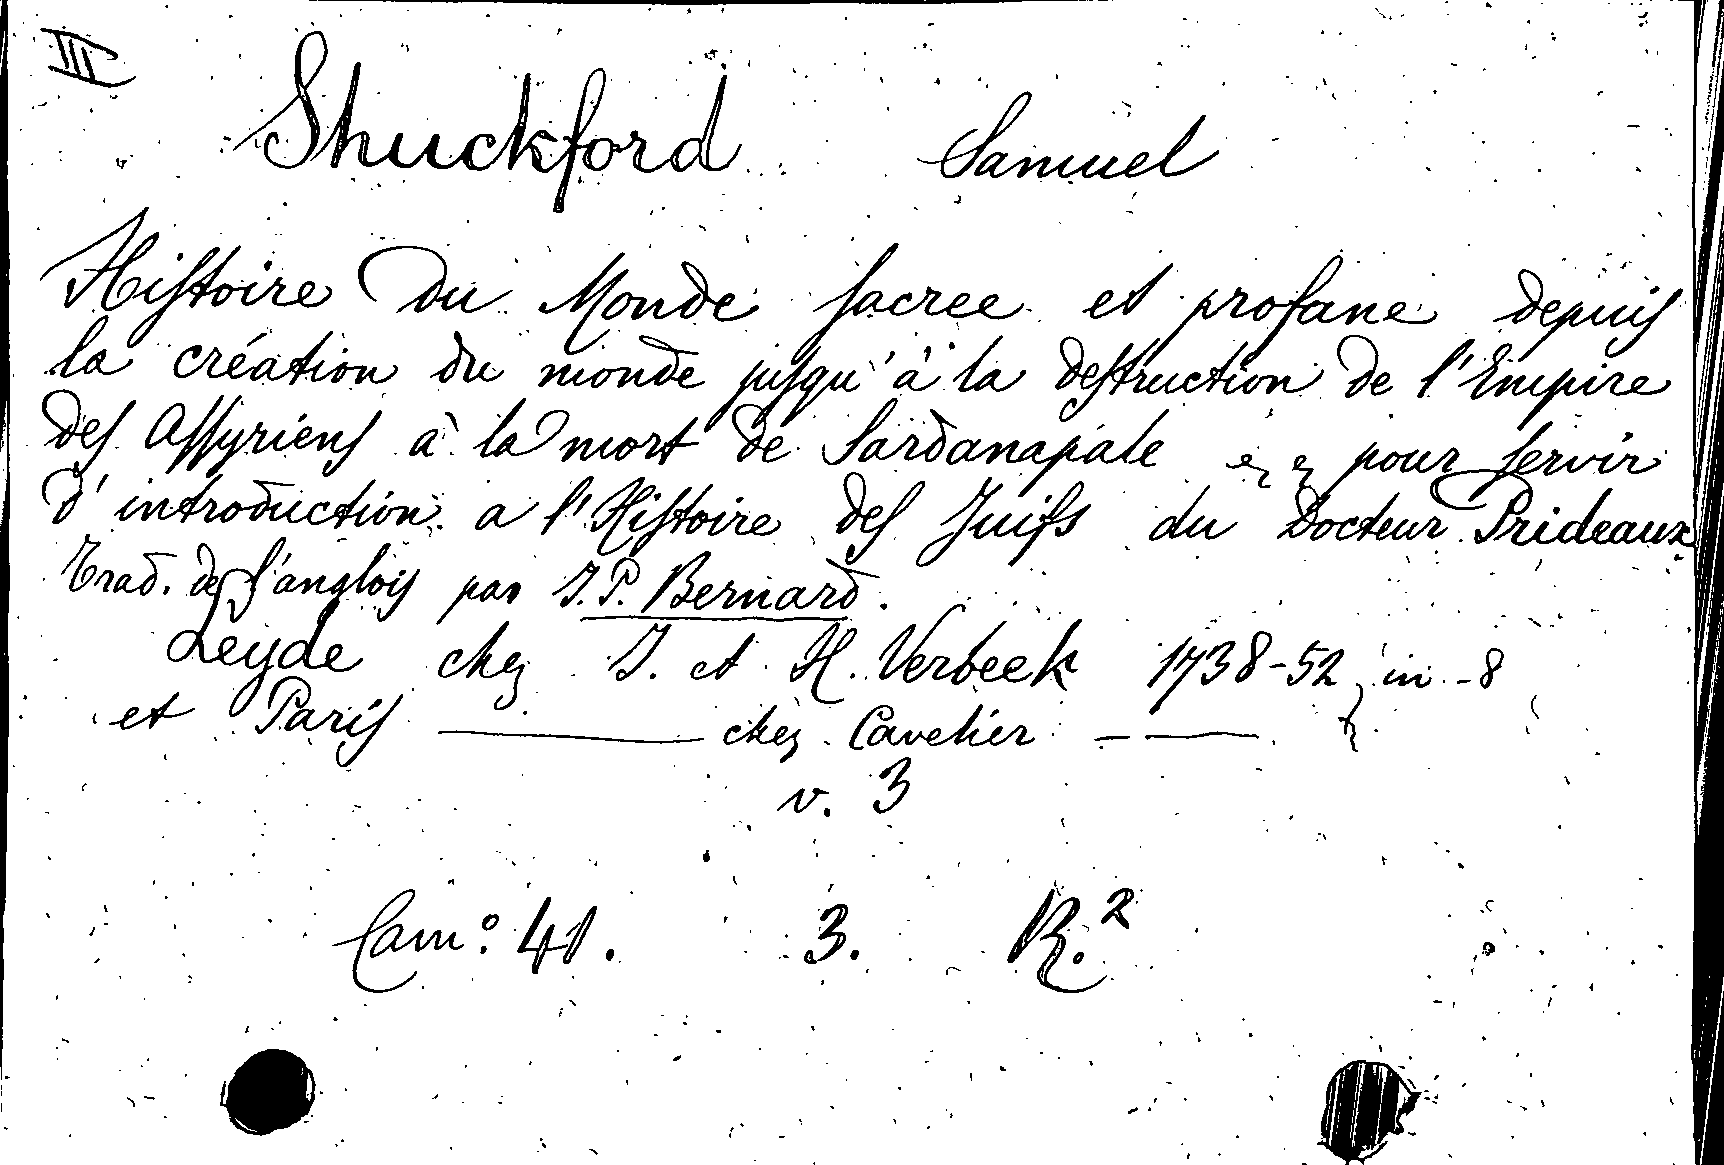 III
Shuckford Samuel
Histoire du Monde sacree et profane depuis
la création du monde jusqu'à la destruction de l'Empire
des Assyriens à la mort de Sardanapale pour servir
d'introduction a l'Histoire des Juifs du Docteur Prideaux
Trad. de l'anglois par J. P. Bernard.
Leyde chez J. et H. Verbeek 1738-52 in-8
et Paris ——— chez Cavelier - ———
v. 3
Cam: 41. 3. R.2